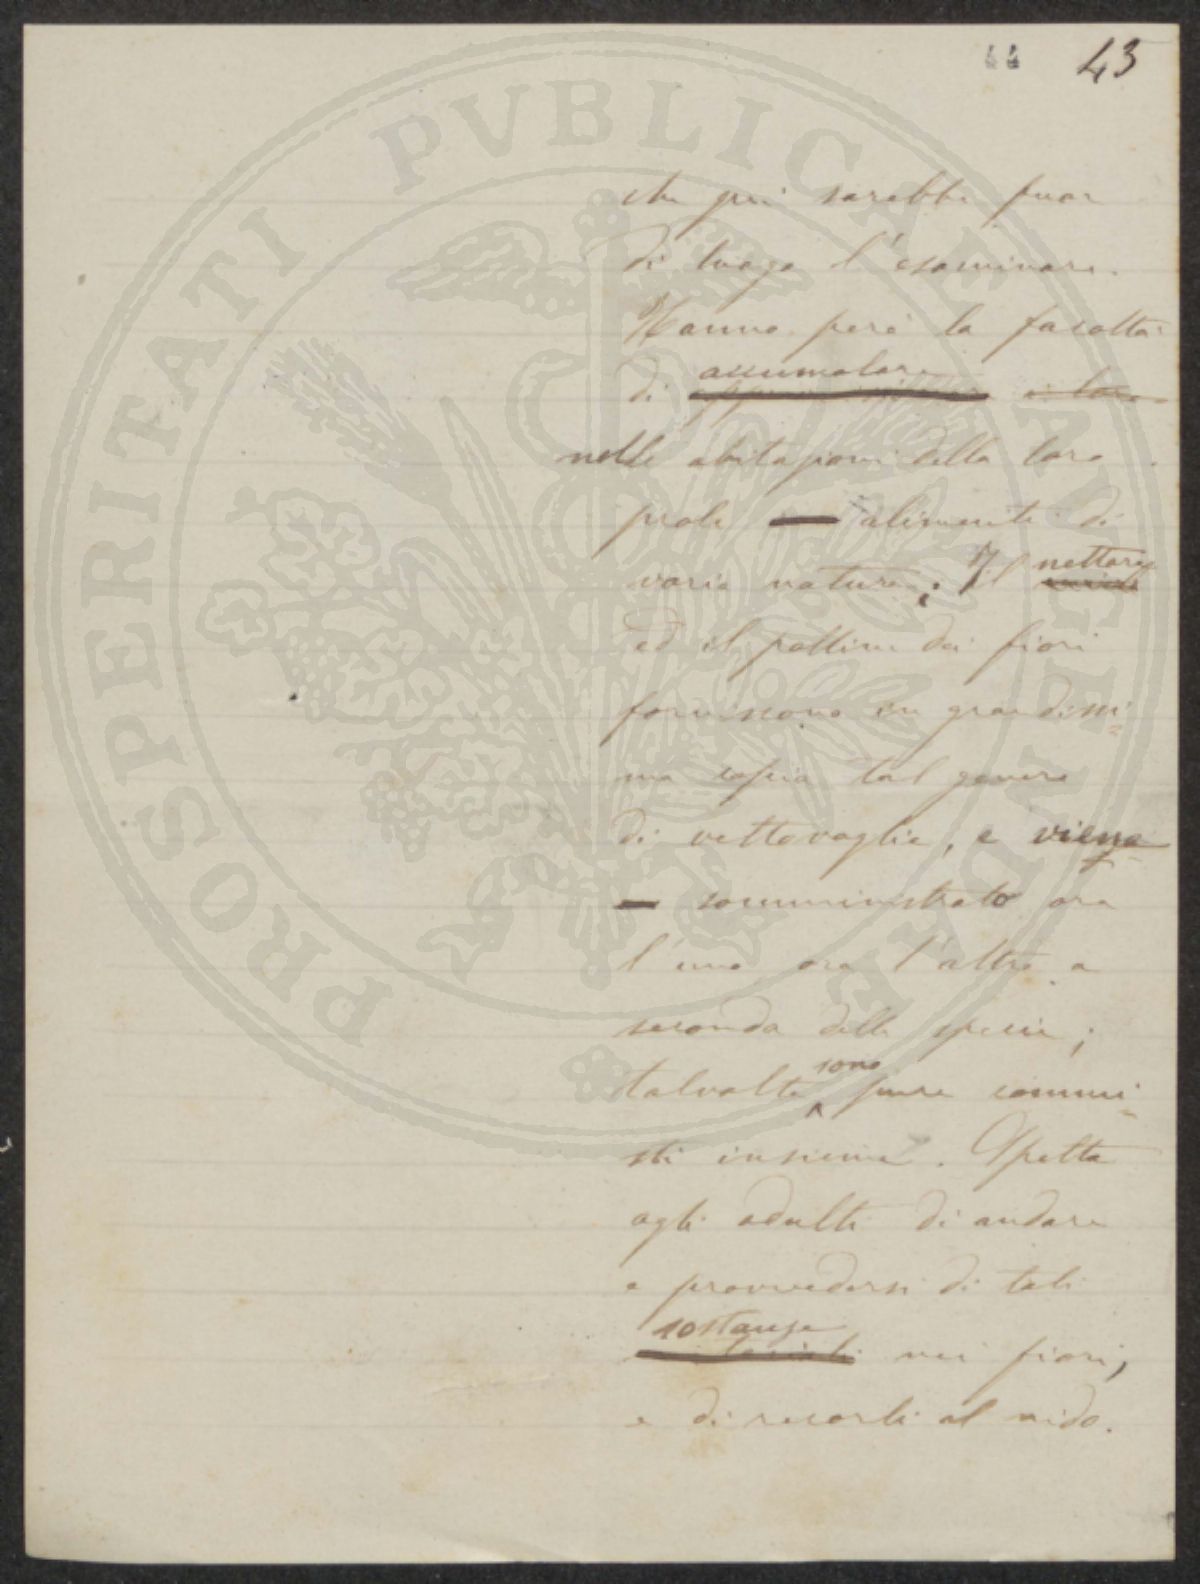 44 43
PROSPERITATI PVBLICAE AVGENDAE
che qui sarebbe fuor
di luogo l'esaminare.
Hanno però la facoltà
di accumolare
nelle abitazioni della loro
prole alimenti di
varia natura; Il nettare
ed il polline dei fiori
forniscono in grandissi=
ma copia tal genere
di vettovaglie, e viene
somministrato ora
l'uno ora l'altro a
seconda delle specie;
talvolta sono pure commi=
sti insieme. Spetta
agli adulti di andare
a provvedersi di tali
sostanze nei fiori,
e di recarli al nido.